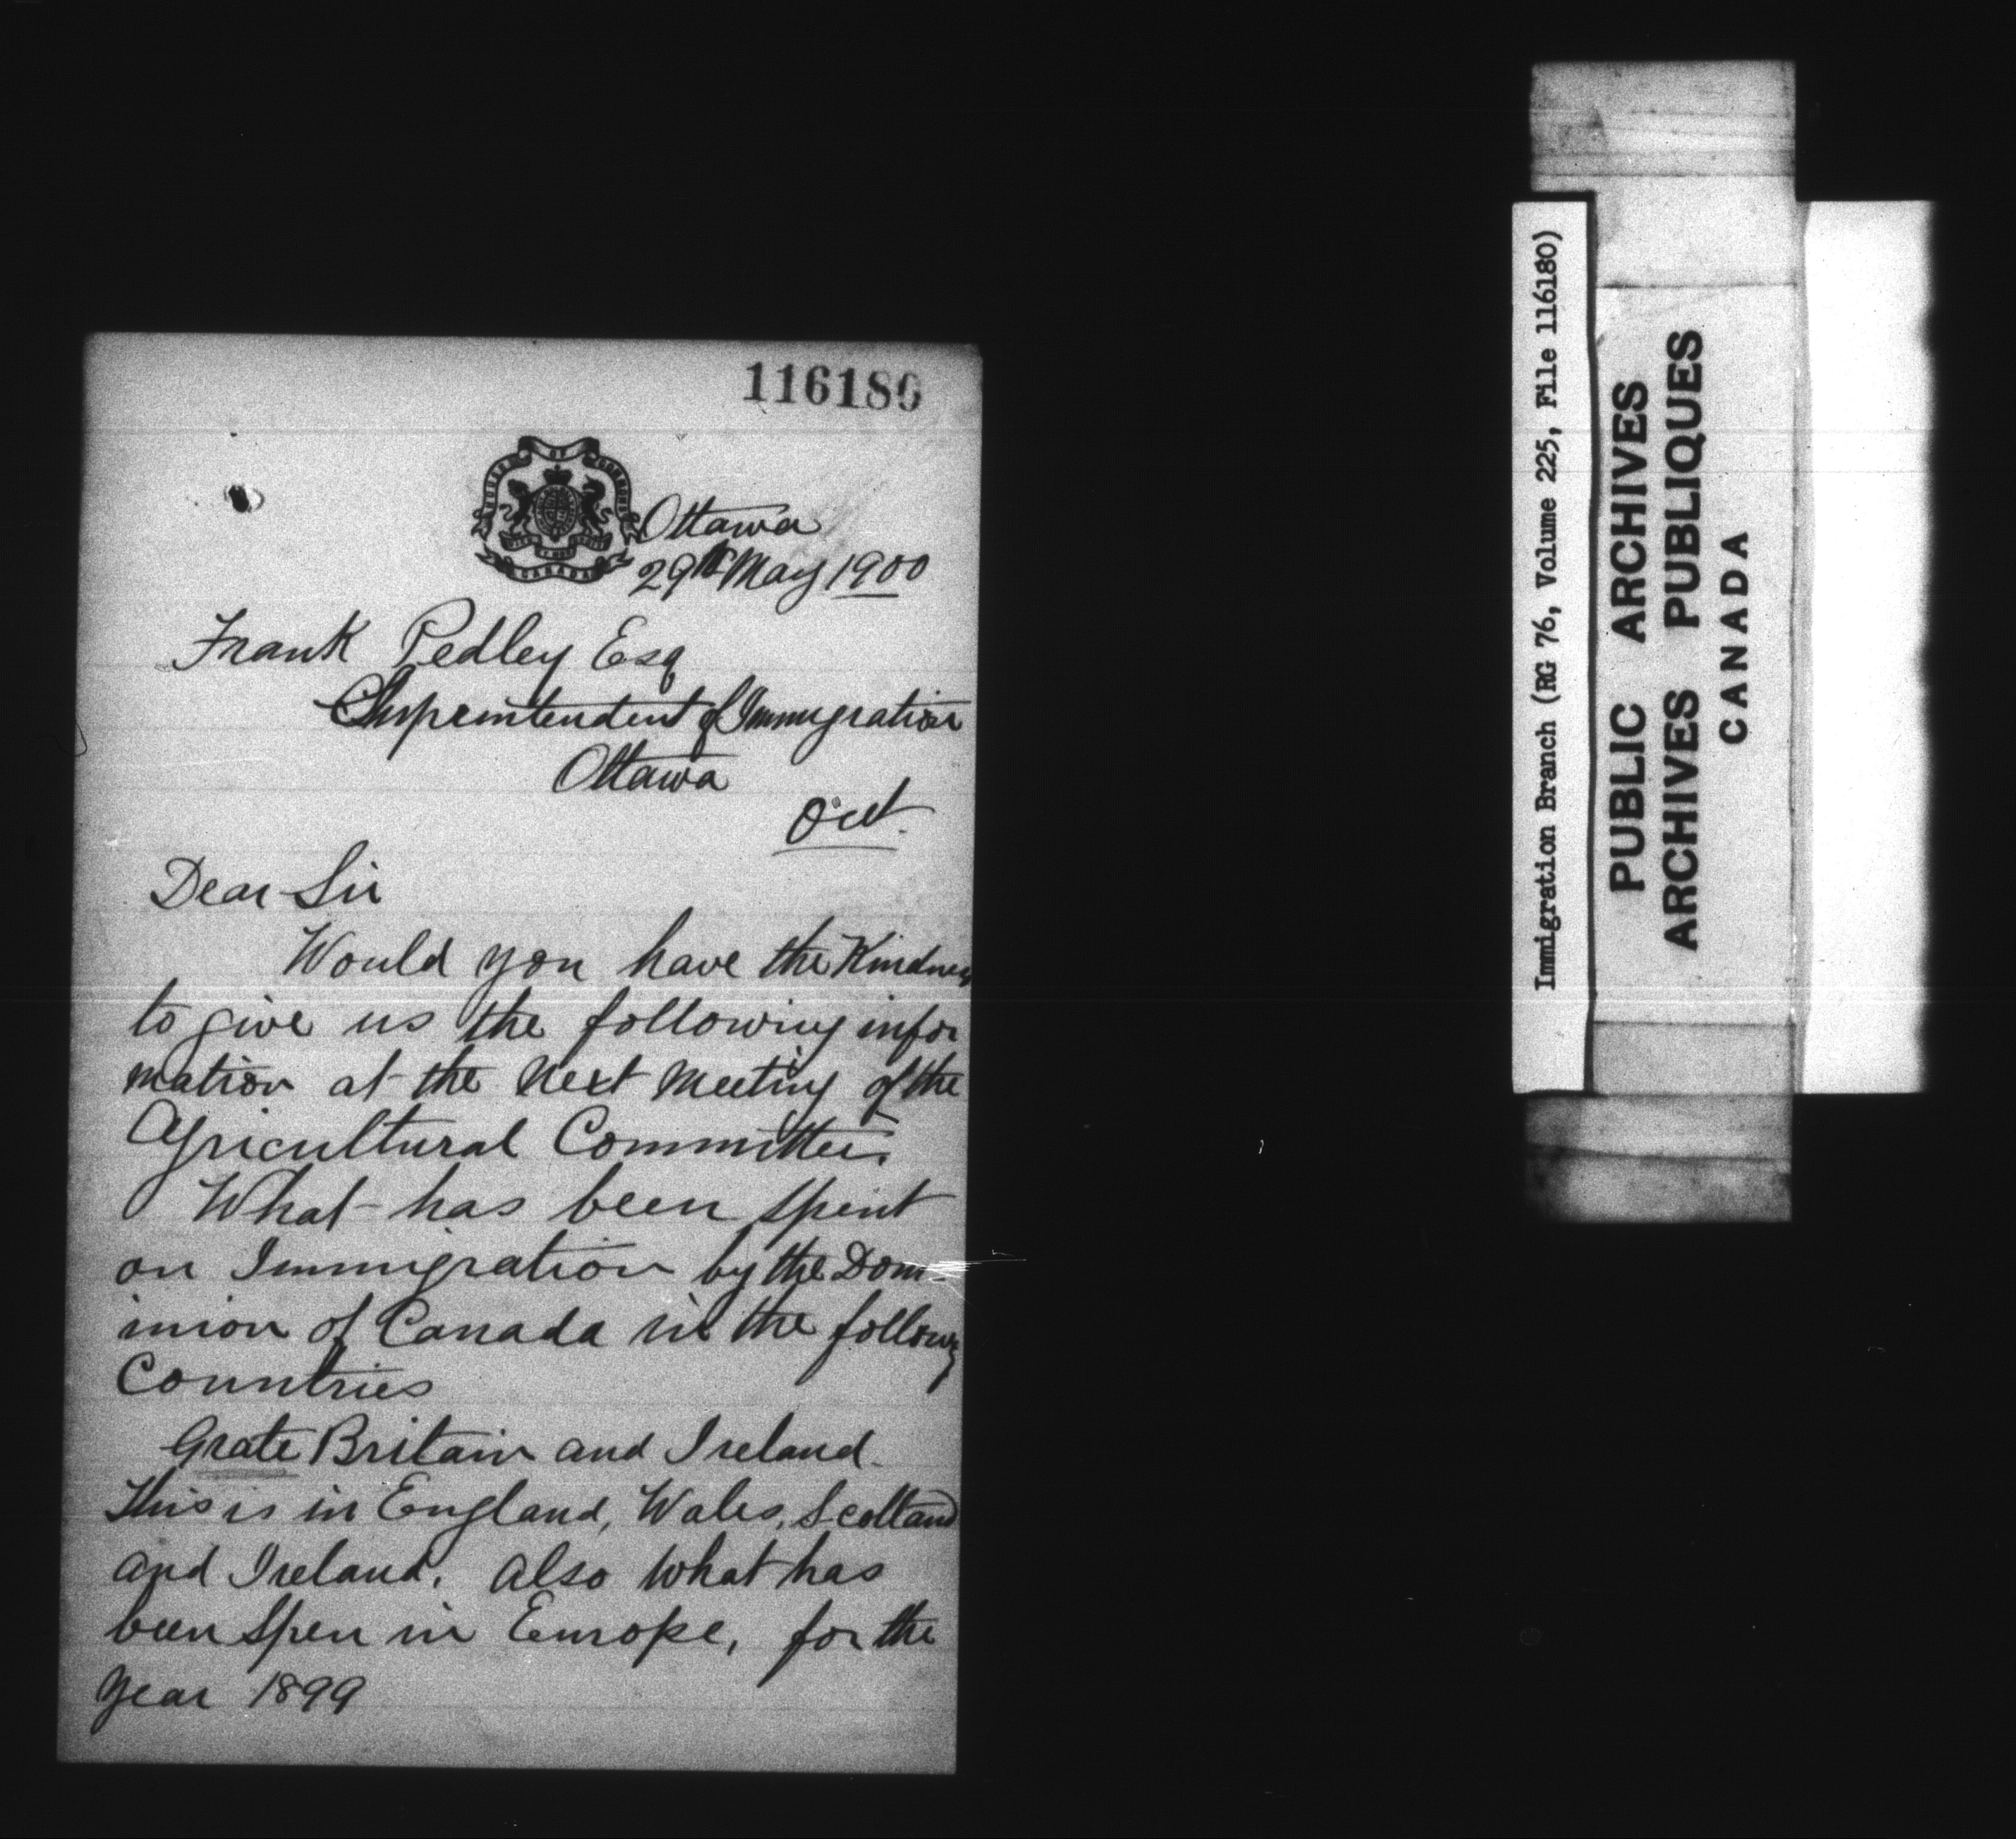 116180
HOUSE OF COMMONS
CANADA
Ottawa
29th May 1900
Frank Pedley Esq
Superintendent of Immigration
Ottawa
Ont.
Dear Sir
Would you have the Kindness
to give us the following infor
mation at the next Meeting of the
Agricultural Committee.
What has been spent
on Immigration by the Dom-
inion of Canada in the following
Countries
Grate Britain and Ireland.
This is in England, Wales, Scotland
and Ireland. also what has
been Spen in Europe, for the
year 1899
Immigration Branch (RG 76, Volume 225, File 116180)
PUBLIC ARCHIVES
ARCHIVES PUBLIQUES
CANADA